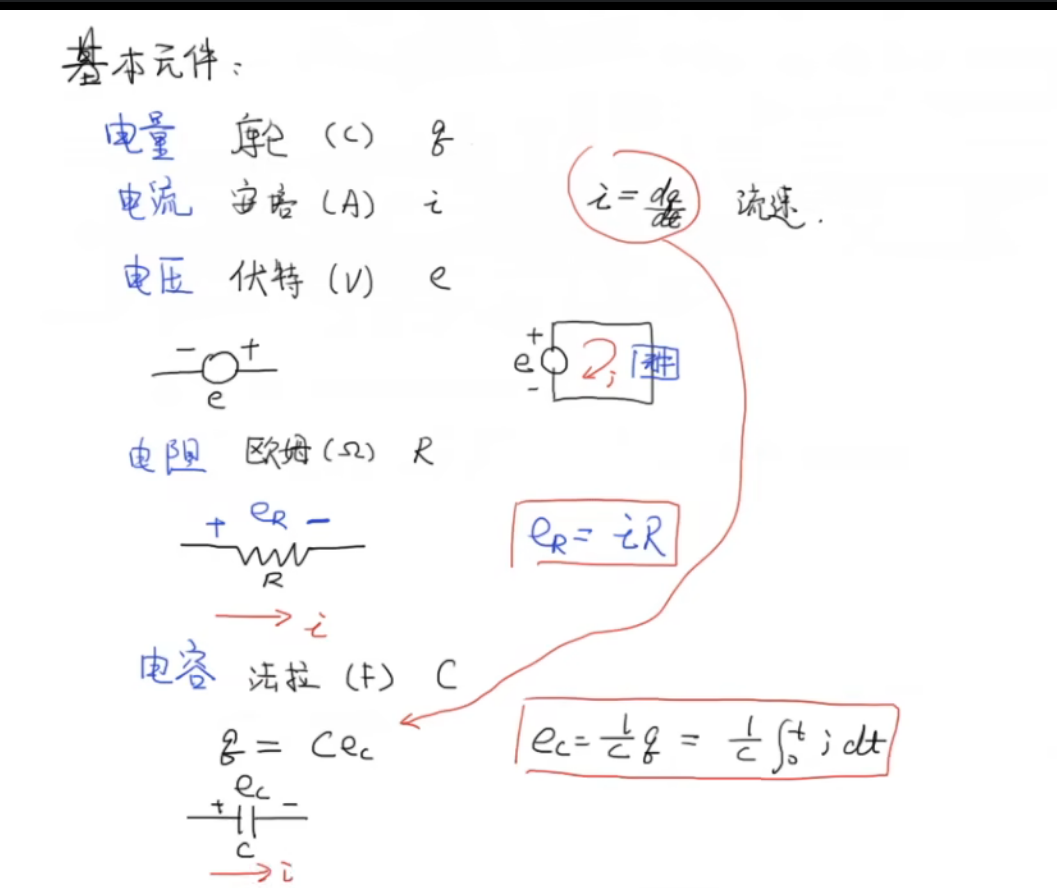 基本元件:
电量 库仑 (C) q
电流 安培 (A) i i = dq/dt 流速.
电压 伏特 (V) e
- + e
+ e - i 元件
电阻 欧姆 (Ω) R
+ eR - R
eR = iR
i
电容 法拉 (F) C
q = CeC
eC = 1/C q = 1/C ∫₀ᵗ i dt
eC
+ -
C
i